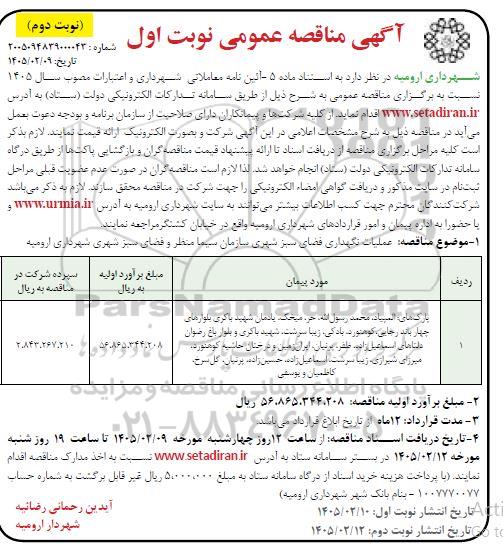 (نوبت دوم)
آگهی مناقصه عمومی نوبت اول
شماره : ۲۰۰۵۰۹۴۸۳۹۰۰۰۰۴۳
تاریخ: ۱۴۰۵/۰۲/۰۹
شهرداری ارومیه در نظر دارد به استناد ماده ۵ -آئین نامه معاملاتی شهرداری و اعتبارات مصوب سال ۱۴۰۵
نسبت به برگزاری مناقصه عمومی به شرح ذیل از طریق سامانه تدارکات الکترونیکی دولت (ستاد) به آدرس
www.setadiran.ir اقدام نماید. از کلیه شرکت‌ها و پیمانکاران دارای صلاحیت از سازمان برنامه و بودجه دعوت بعمل
می‌آید در مناقصه ذیل به شرح مشخصات اعلامی در این آگهی شرکت و بصورت الکترونیک ارائه قیمت نمایند. لازم بذکر
است کلیه مراحل برگزاری مناقصه از دریافت اسناد تا ارائه پیشنهاد قیمت مناقصه‌گران و بازگشایی پاکت‌ها از طریق درگاه
سامانه تدارکات الکترونیکی دولت (ستاد) انجام خواهد شد. لذا لازم است مناقصه‌گران در صورت عدم عضویت قبلی مراحل
ثبت‌نام در سایت مذکور و دریافت گواهی امضاء الکترونیکی را جهت شرکت در مناقصه محقق سازند. لازم به ذکر می‌باشد
شرکت‌کنندگان محترم جهت کسب اطلاعات بیشتر می‌توانند به سایت شهرداری ارومیه به آدرس www.urmia.ir و
یا حضورا به اداره پیمان و امور قراردادهای شهرداری ارومیه واقع در خیابان کشتگرمراجعه نمایند.
۱-موضوع مناقصه: عملیات نگهداری فضای سبز شهری سازمان سیما منظر و فضای سبز شهری شهرداری ارومیه
ردیف
مورد پیمان
مبلغ برآورد اولیه به ریال
سپرده شرکت در مناقصه به ریال
۱
پارک‌های: المپیاد، محمد رسول‌الله، حر، میخک، یادمان شهید باکری بلوارهای
چهارباند رجایی، کوهنورد، یادکی، زیبا سرشت، شهید باکری و بلوار باغ رضوان
۵۶.۸۶۵.۳۴۴.۲۰۸
۲.۸۴۳.۲۶۷.۲۱۰
میرزای شیرازی، زیبا سرشت، اسماعیل‌زاده، حسین‌زاده، برنیان، گل‌سرخ،
کاظمیان و یوسفی
۲- مبلغ برآورد اولیه مناقصه: ۵۶.۸۶۵.۳۴۴.۲۰۸ ریال
۳- مدت قرارداد: ۱۲ماه از تاریخ ابلاغ قرارداد می‌باشد.
۴-تاریخ دریافت اسناد مناقصه: از ساعت ۱۳روز چهارشنبه مورخه ۱۴۰۵/۰۲/۰۹ تا ساعت ۱۹ روز شنبه
مورخه ۱۴۰۵/۰۲/۱۲ در بستر سامانه ستاد به آدرس www.setadiran.ir نسبت به اخذ مدارک مناقصه اقدام
نمایند. (با پرداخت هزینه خرید اسناد از درگاه سامانه ستاد به مبلغ ۵,۰۰۰,۰۰۰ ریال غیر قابل برگشت به شماره حساب
۱۰۰۷۷۷۰۰۷۷ - بنام بانک شهر شهرداری ارومیه)
تاریخ انتشار نوبت اول: ۱۴۰۵/۰۲/۱۰
تاریخ انتشار نوبت دوم: ۱۴۰۵/۰۲/۱۲
آیدین رحمانی رضائیه
شهردار ارومیه
ParsNamadData
پایگاه اطلاع رسانی مناقصه و مزایده